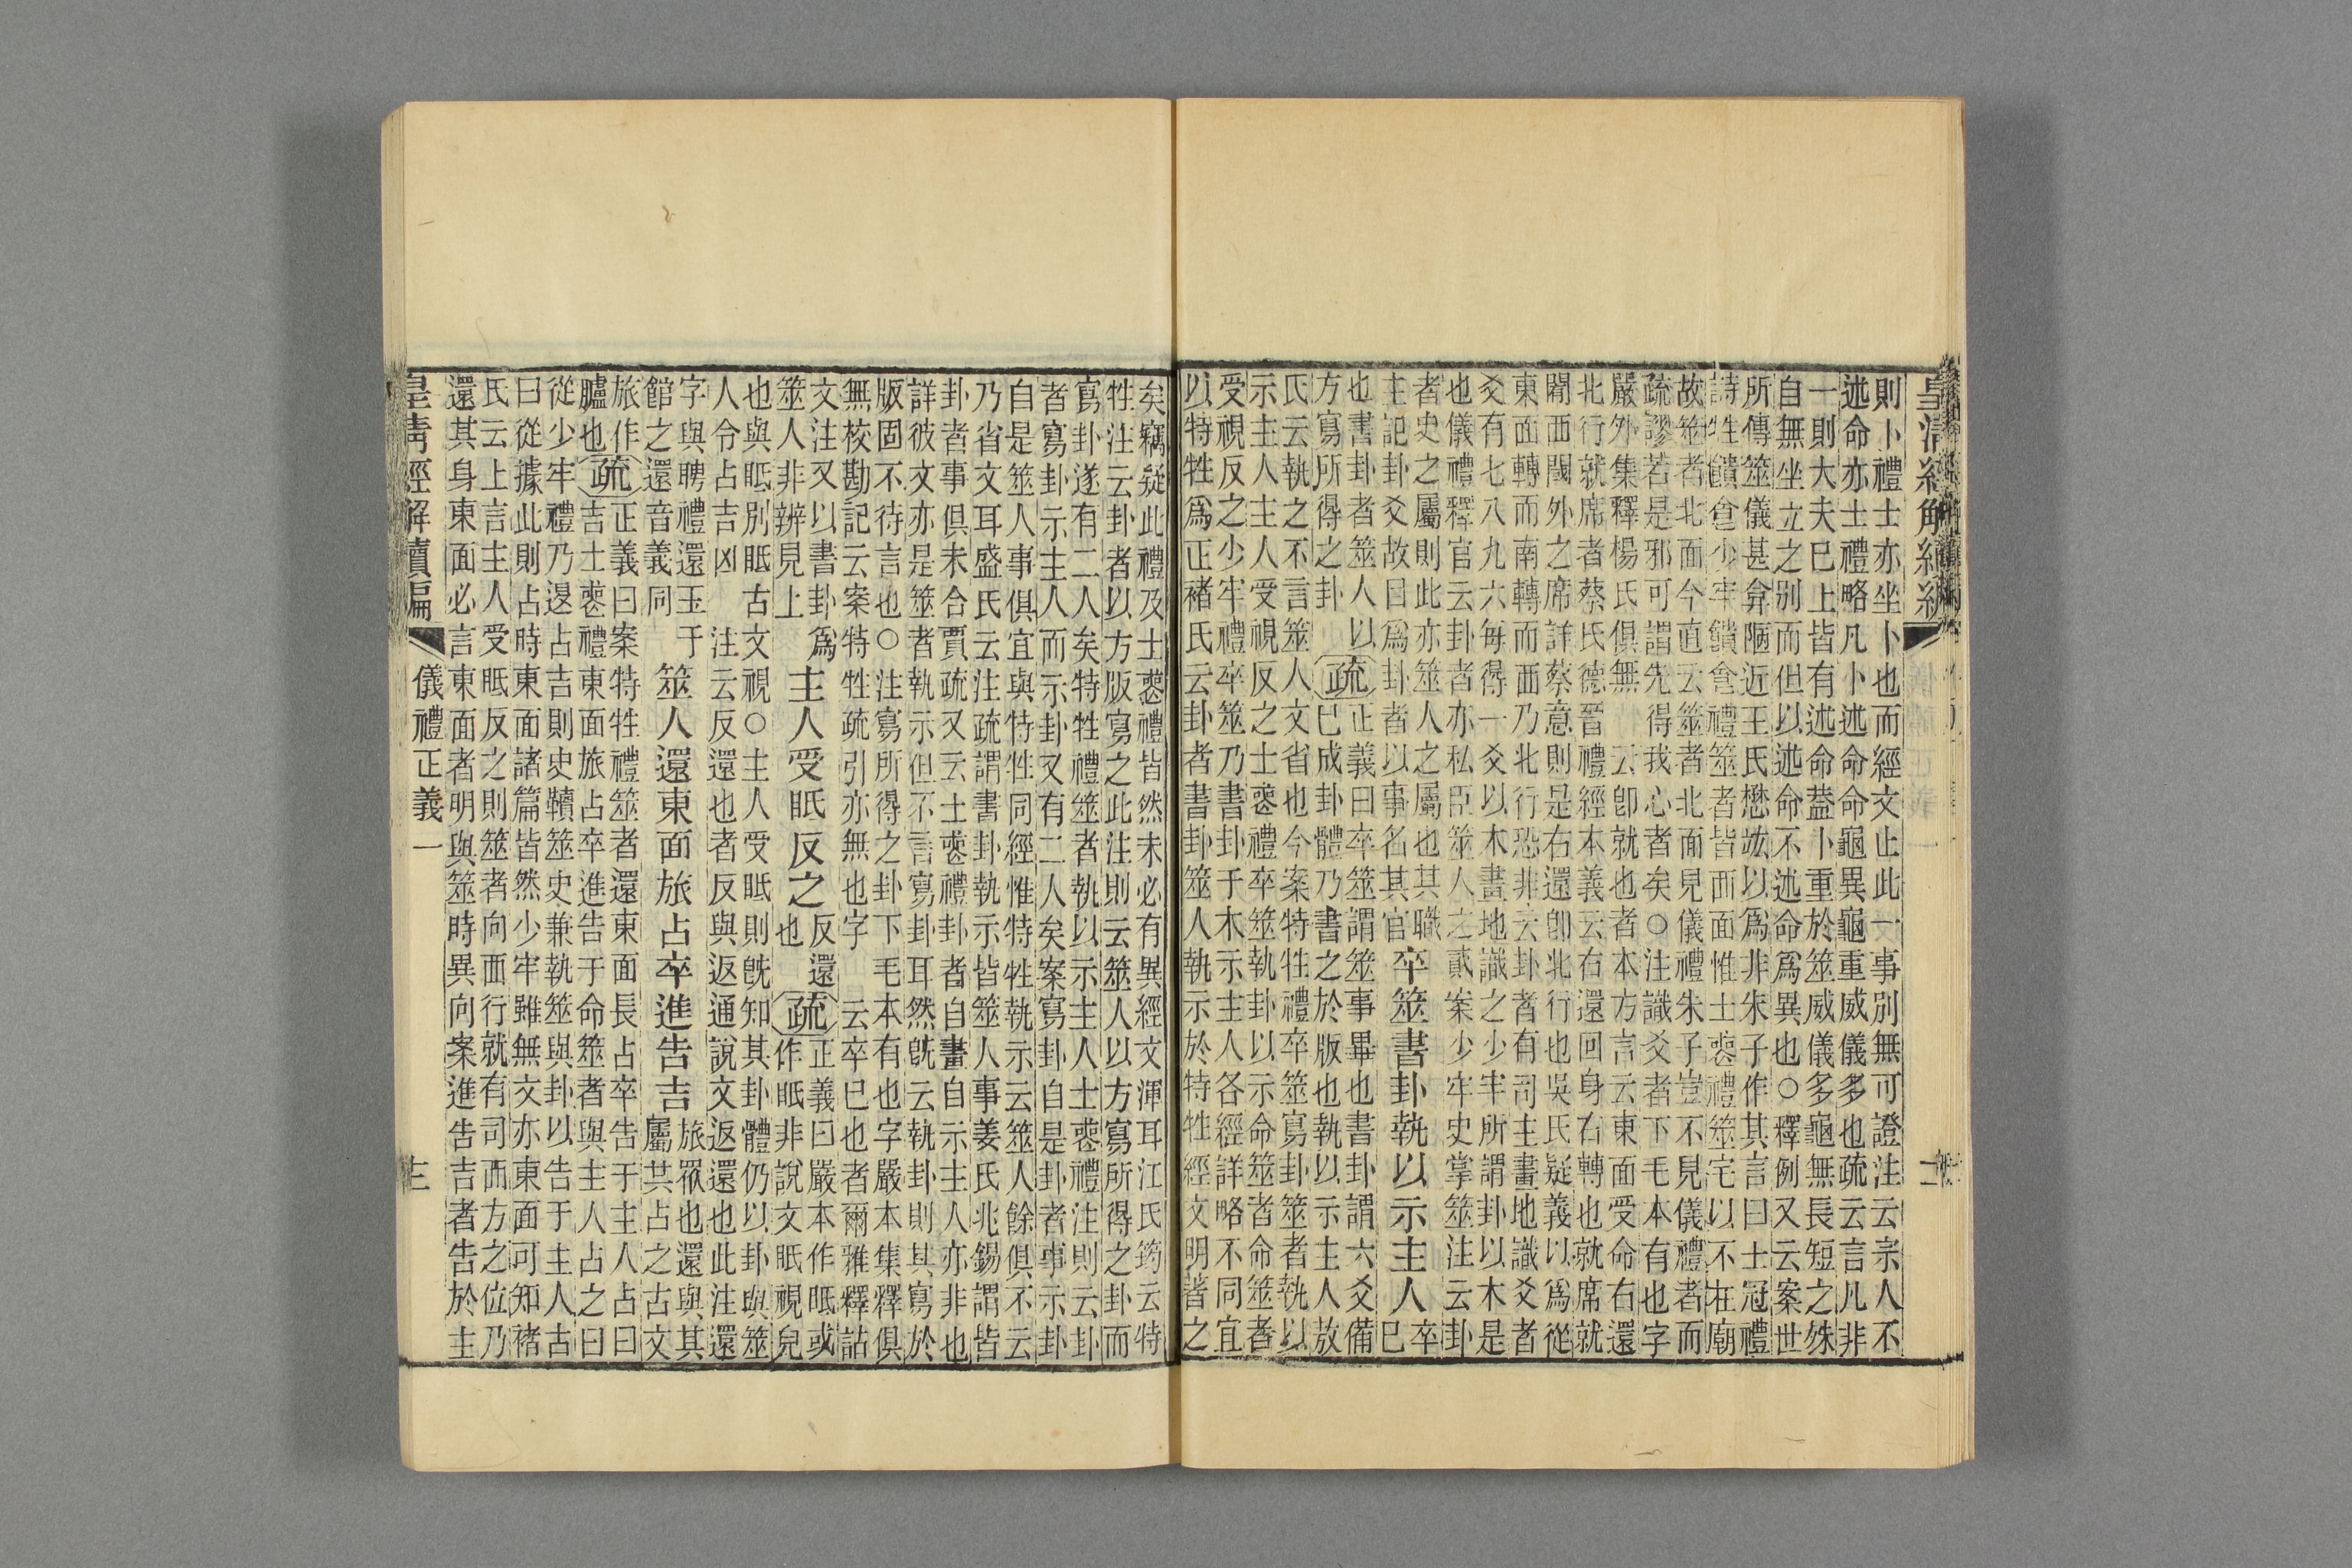 則卜禮士亦坐卜也而經文止此一事別無可證注云宗人不
述命亦士禮略凡卜述命命龜異龜重威儀多也疏云言凡非
一則大夫已上皆有述命葢卜重於筮威儀多龜無長短之殊
自無坐立之別而但以述命不述命為異也○釋例又云案世
所傳筮儀甚弇陋近王氏懋竑以爲非朱子作其言曰士冠禮
詩牲饋食少牢饋食禮筮者皆西面惟士喪禮筮宅以不在廟
故筮者北面今直云筮者北面見儀禮朱子豈不見儀禮者而
疏謬若是邪可謂先得我心者矣○注識爻者下毛本有也字
嚴外集釋楊氏俱無　云卽就也者本方言云東面受命右還
北行就席者蔡氏德晉禮經本義云右還回身右轉也就席就
闑西閾外之席詳蔡意則是右還卽北行也吳氏疑義以爲從
東面轉而南轉而西乃北行恐非云卦者有司主畫地識爻者
爻有七八九六每得一爻以木畫地識之少牢所謂卦以木是
也儀禮釋官云卦者亦私臣筮人之貳案少牢史掌筮注云卦
者史之屬則此亦筮人之屬也其職
主記卦爻故曰爲卦者以事名其官
卒筮書卦執以示主人
卒
已
也書卦者筮人以
方寫所得之卦
疏
正義曰卒筮謂筮事畢也書卦謂六爻備
已成卦體乃書之於版也執以示主人放
氏云執之不言筮人文省也今案特牲禮卒筮寫卦筮者執以
示主人主人受視反之士喪禮卒筮執卦以示命筮者命筮者
受視反之少牢禮卒筮乃書卦于木示主人各經詳略不同宜
以特牲爲正褚氏云卦者書卦筮人執示於特牲經文明著之
矣竊疑此禮及士喪禮皆然未必有異經文渾耳江氏筠云特
牲注云卦者以方版寫之此注則云筮人以方寫所得之卦而
寫卦遂有二人矣特牲禮筮者執以示主人士喪禮注則云卦
者寫卦示主人而示卦又有二人矣案寫卦自是卦者事示卦
自是筮人事俱宜與特牲同經惟特牲執示云筮人餘俱不云
乃省文耳盛氏云注疏謂書卦執示皆筮人事姜氏兆錫謂皆
卦者事俱未合賈疏又云士喪禮卦者自畫自示主人亦非也
詳彼文亦是筮者執示但不言寫卦耳然旣云執卦則其寫於
版固不待言也○注寫所得之卦下毛本有也字嚴本集釋俱
無校勘記云案特牲疏引亦無也字　云卒已也者爾雅釋詁
文注又以書卦爲
筮人非辨見上
主人受眡反之
反還
也
疏
正義曰嚴本作眡或
作眂非說文眂視皃
也與眡別眡古文視○主人受眡則旣知其卦體仍以卦與筮
人令占吉凶　注云反還也者反與返通說文返還也此注還
字與聘禮還玉于
館之還音義同
筮人還東面旅占卒進告吉
旅眾也還與其
屬共占之古文
旅作
臚也
疏
正義曰案特牲禮筮者還東面長占卒告于主人占曰
吉士喪禮東面旅占卒進告于命筮者與主人占之曰
從少牢禮乃退占吉則史韇筮史兼執筮與卦以告于主人古
曰從據此則占時東面諸篇皆然少牢雖無文亦東面可知褚
氏云上言主人受眡反之則筮者向西行就有司西方之位乃
還其身東面必言東面者明與筮時異向案進告吉者告於主
皇清經解續編
儀禮正義一